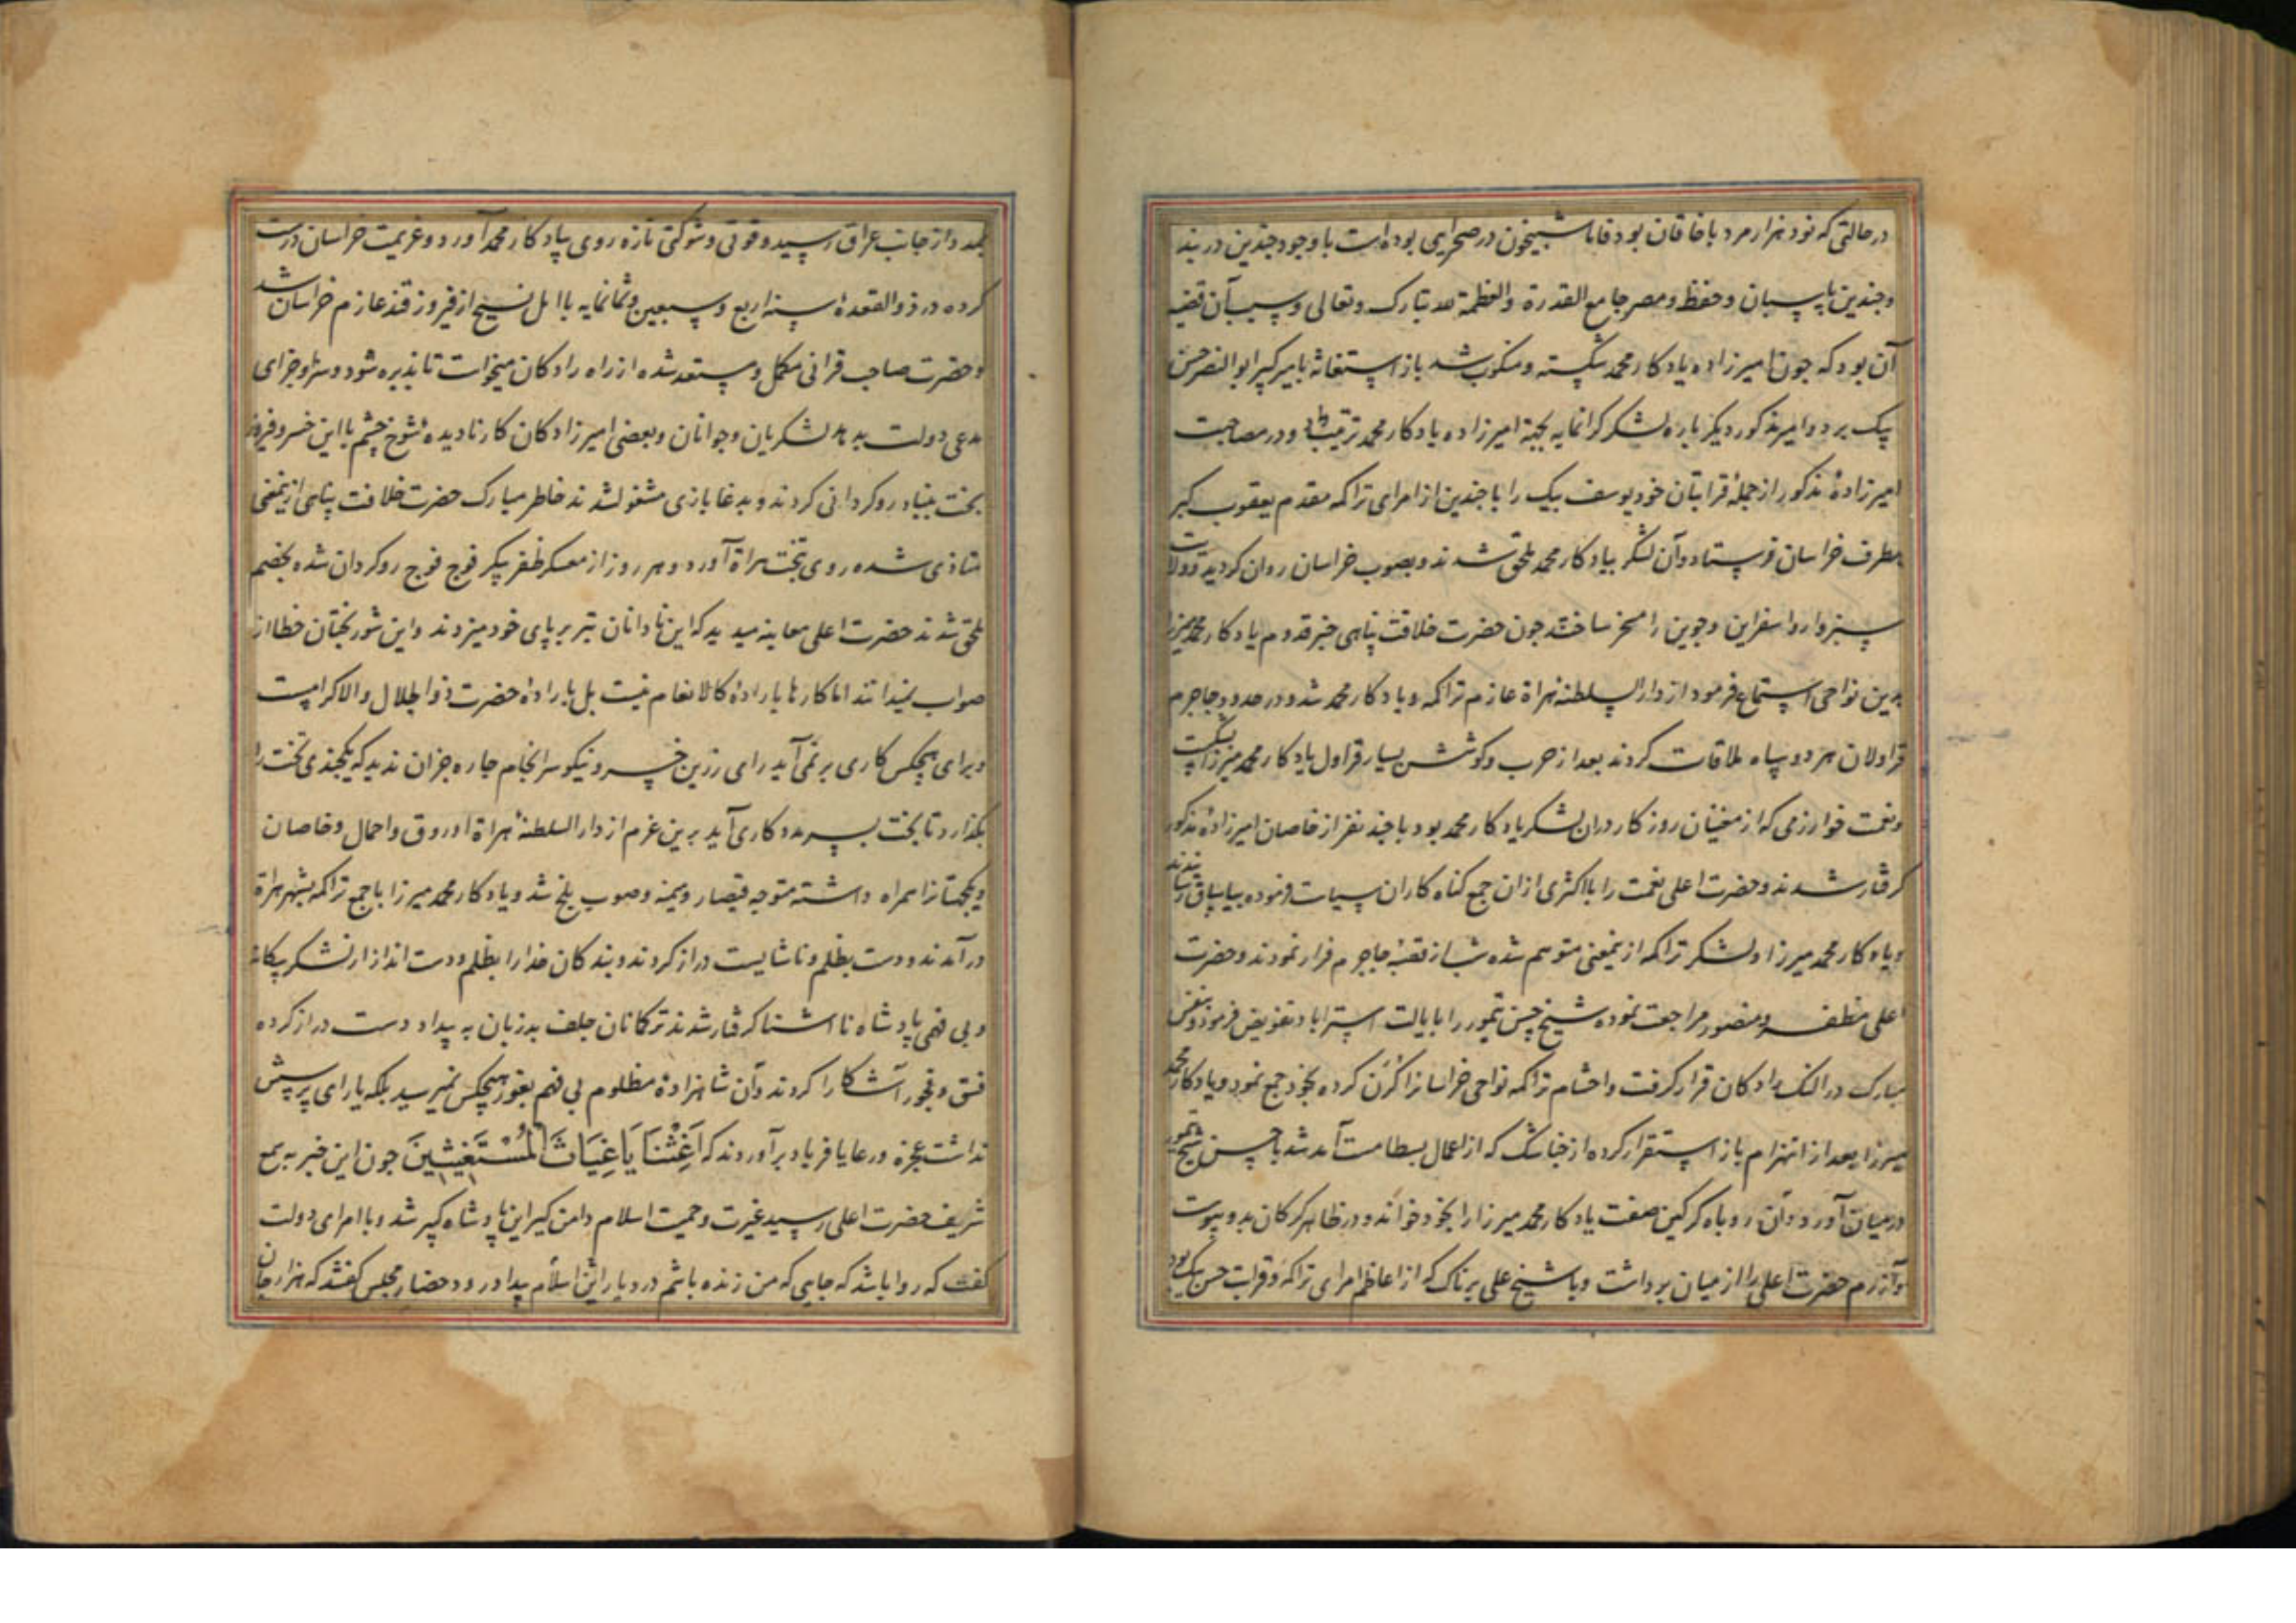 در حالتی که نود هزار مرد با خاقان بود فاما شبیخون در صحرایی بوده است با وجود چندین در بند
و چندین پاسبان و حفظ و مصر جامع القدرة والعظمة لله تبارک و تعالی و سبب آن قضیه
آن بود که چون امیرزاده یادکار محمد شکسته و منکوب شد باز استغاثه بامیر کبیر ابو النصر حسن
بیک برد و امیر مذکور دیکر باره لشکر کرانمایه بجهة امیرزاده یادکار محمد ترتیب داد و در مصاحبت
امیرزادهٔ مذکور از جملهٔ قرابتان خود یوسف بیک را با چندین از امرای تراکمه مقدم
بطرف خراسان فرستاد و آن لشکر بیادکار محمد ملحق شدند و بصوب خراسان روان کردید
سبزوار و اسفراین و جوین را مسخر ساختند چون حضرت خلافت پناهی خبر قدوم یادکار محمد میرزا
بدین نواحی استماع فرمود از دار السلطنهٔ هراة عازم تراکمه و یادکار محمد شد و در حدود جاجرم
قراولان هر دو سپاه ملاقات کردند بعد از حرب و کوشش بسیار قراول یادکار محمد میرزا شکست
و نعمت خوارزمی که از مفتنان روزکار دران لشکر یادکار محمد بود با چند نفر از خاصان امیرزادهٔ مذکور
کرفتار شدند و حضرت اعلی نعمت را با اکثری ازان جمع کناه کاران سیاست فرموده بیاساق رسانیدند
و یادکار محمد میرزا و لشکر تراکمه ازینمعنی متوهم شده شب از قصبهٔ جاجرم فرار نمودند و حضرت
اعلی مظفر و منصور مراجعت نموده شیخ حسن تیمور را بایالت استراباد تفویض فرمود و بنفس
مبارک در النک رادکان قرار کرفت و احشام تراکمه نواحی خراسانرا کرن کرده بخود جمع نمود و یادکار محمد
میرزا بعد از انهزام باز استقرار کرده از که از اعمال بسطامست آمد شد با حسن شیخ تیمور
در میان آورد و آن روباه کرکین صفت یادکار محمد میرزا را بخود خواند و در ظاهر کرکان بدو پیوست
و آزرم حضرت اعلی را از میان برداشت و با شیخ علی پرناک که از اعاظم امرای تراکمه و قرابت حسن بیک بود
واز جانب عراق رسید و قوتی و شوکتی تازه روی بیادکار محمد آورد و عزیمت خراسان درست
کرده در ذو القعدهٔ سنه اربع و سبعین و ثمانمایه با ایل از فیروز قند عازم خراسان شد
و حضرت صاحب قرانی مکمل و مستعد شده از راه رادکان میخواست تا پذیره شود و سزا و جزای
مدعی دولت بدهد لشکریان و جوانان و بعضی امیرزادکان کار نادیدهٔ شوخ چشم با این خسرو فیروز
بخت بنیاد رو کردانی کردند و بدغا بازی مشغول شدند خاطر مبارک حضرت خلافت پناهی ازینمعنی
متاذی شده روی بتخت هراة آورد و هر روز از معسکر ظفر پیکر فوج فوج رو کردان شده بخصم
ملحق شدند حضرت اعلی معاینه میدید که این نادانان تبر بر پای خود میزدند و این شور بختان خطا از
صواب نمیدانند اما کارها بارادهٔ کالانعام نیست بل بارادهٔ حضرت ذو الجلال والاکرامست
و برای هیچکس کاری بر نمی آید رای رزین خسرو نیکو سرانجام چاره جز آن ندید که یکچندی تخت را
بکذارد تا بخت بسر مددکاری آید برین عزم از دار السلطنهٔ هراة اوروق و احمال و خاصان
و یکجهتانرا همراه داشته متوجه قیصار و میمنه و صوب بلخ شد و یادکار محمد میرزا با جمع تراکمه بشهر هراة
در آمدند و دست بظلم و ناشایست دراز کردند و بندکان خدا را بظلم و دست انداز لشکر بیکانه
و بی فهمی پادشاه نا آشنا کرفتار شدند ترکمانان جلف بد زبان به بیداد دست دراز کرده
فسق و فجور آشکارا کردند و آن شاهزادهٔ مظلوم بی فهم بغور هیچکس نمیرسید بلکه یارای پرسش
نداشت عجزه و رعایا فریاد برآوردند که اَغِثْنَا یَا غِیَاثَ الْمُسْتَغِیثِینَ چون این خبر بسمع
شریف حضرت اعلی رسید غیرت و حمیت اسلام دامن کیر این پادشاه کبیر شد و با امرای دولت
کفت که روا باشد که جایی که من زنده باشم در دیار اسلام بیداد رود حضار مجلس کفتند که هزار جان